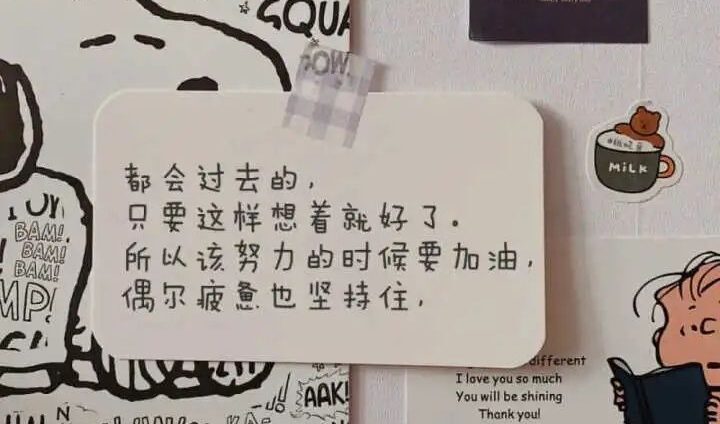 SQUA
POW!
都会过去的，
只要这样想着就好了。
所以该努力的时候要加油，
偶尔疲惫也坚持住，
BAM!
BAM!
BAM!
MP!
AAK!
MiLK
different
I love you so much
You will be shining
Thank you!